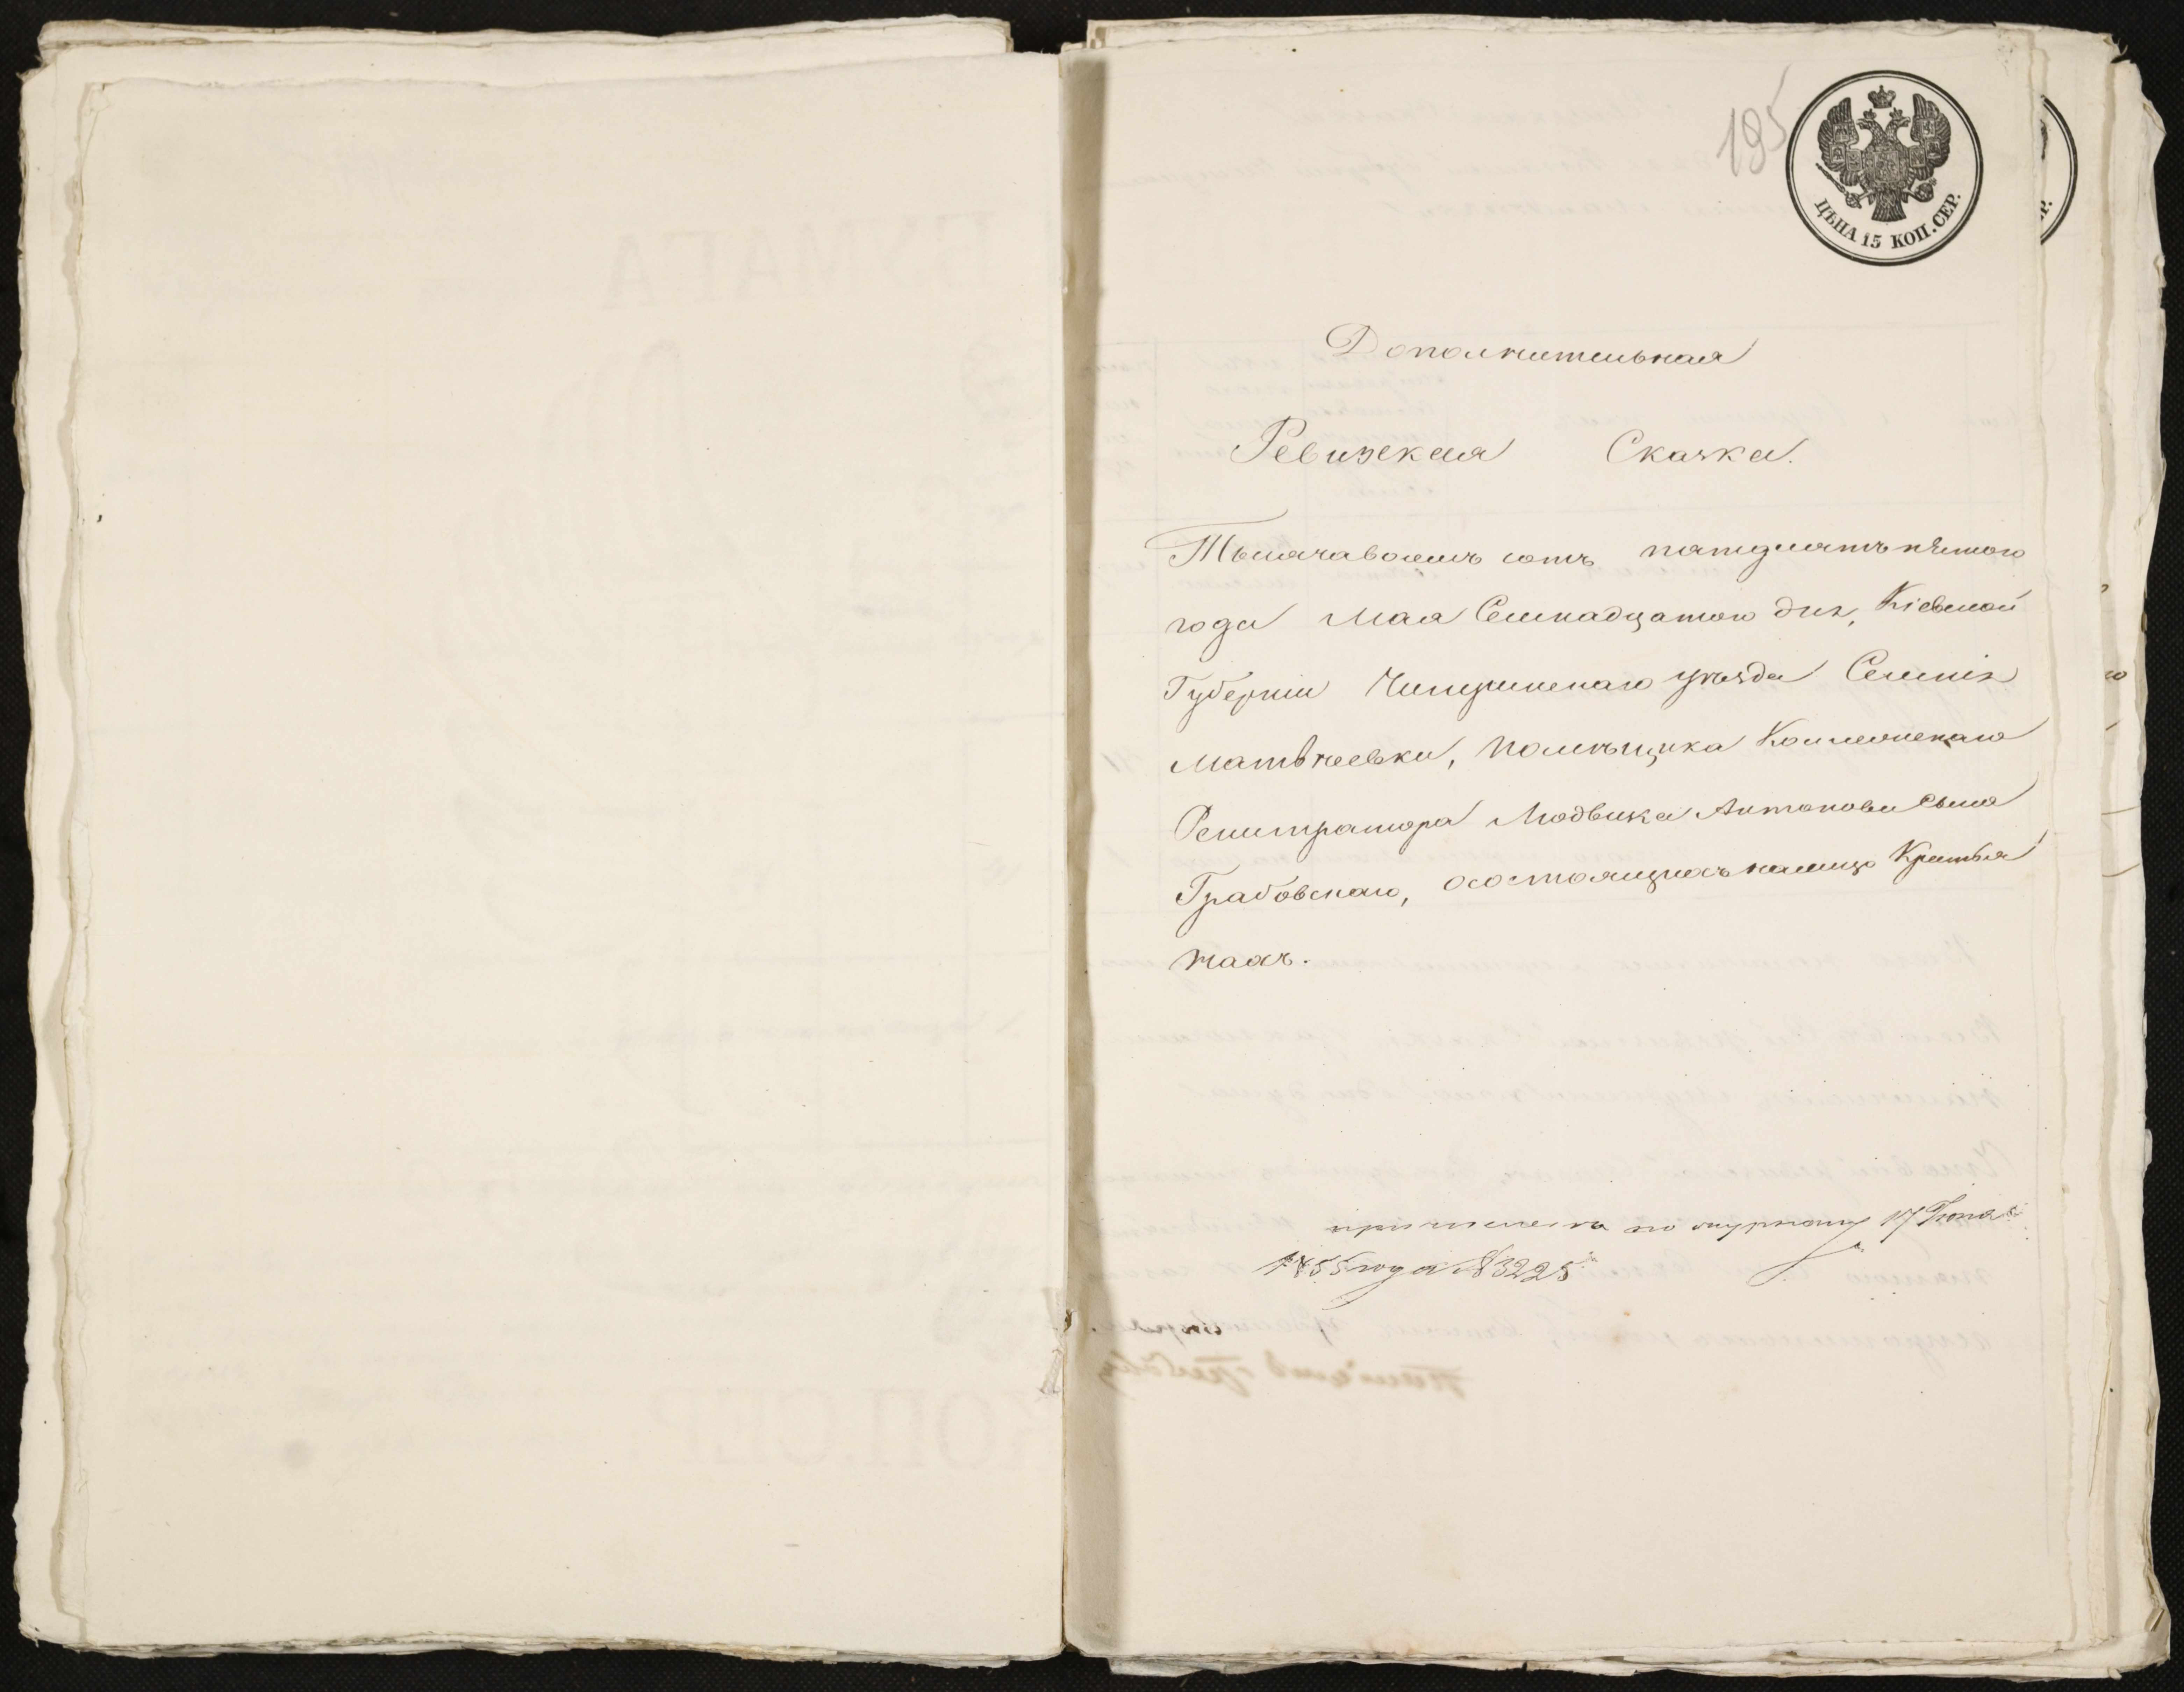 195
ЦѢНА 15 КОП. СЕР.
Дополнительная
Ревизская Сказка.
Тысячавосемъ сотъ пятдесятъ пятого
года мая Семнадцатого дня, Кіевской
Губерніи Чигиринскаго уѣзда Селенія
Матвѣевки, помѣщика Коллежскаго
Регистратора Людвика Антонова сына
Грабовскаго, осостоящихъ налицо Крестья
нахъ.
причислена по журналу 17 Іюня
1855 года №3225